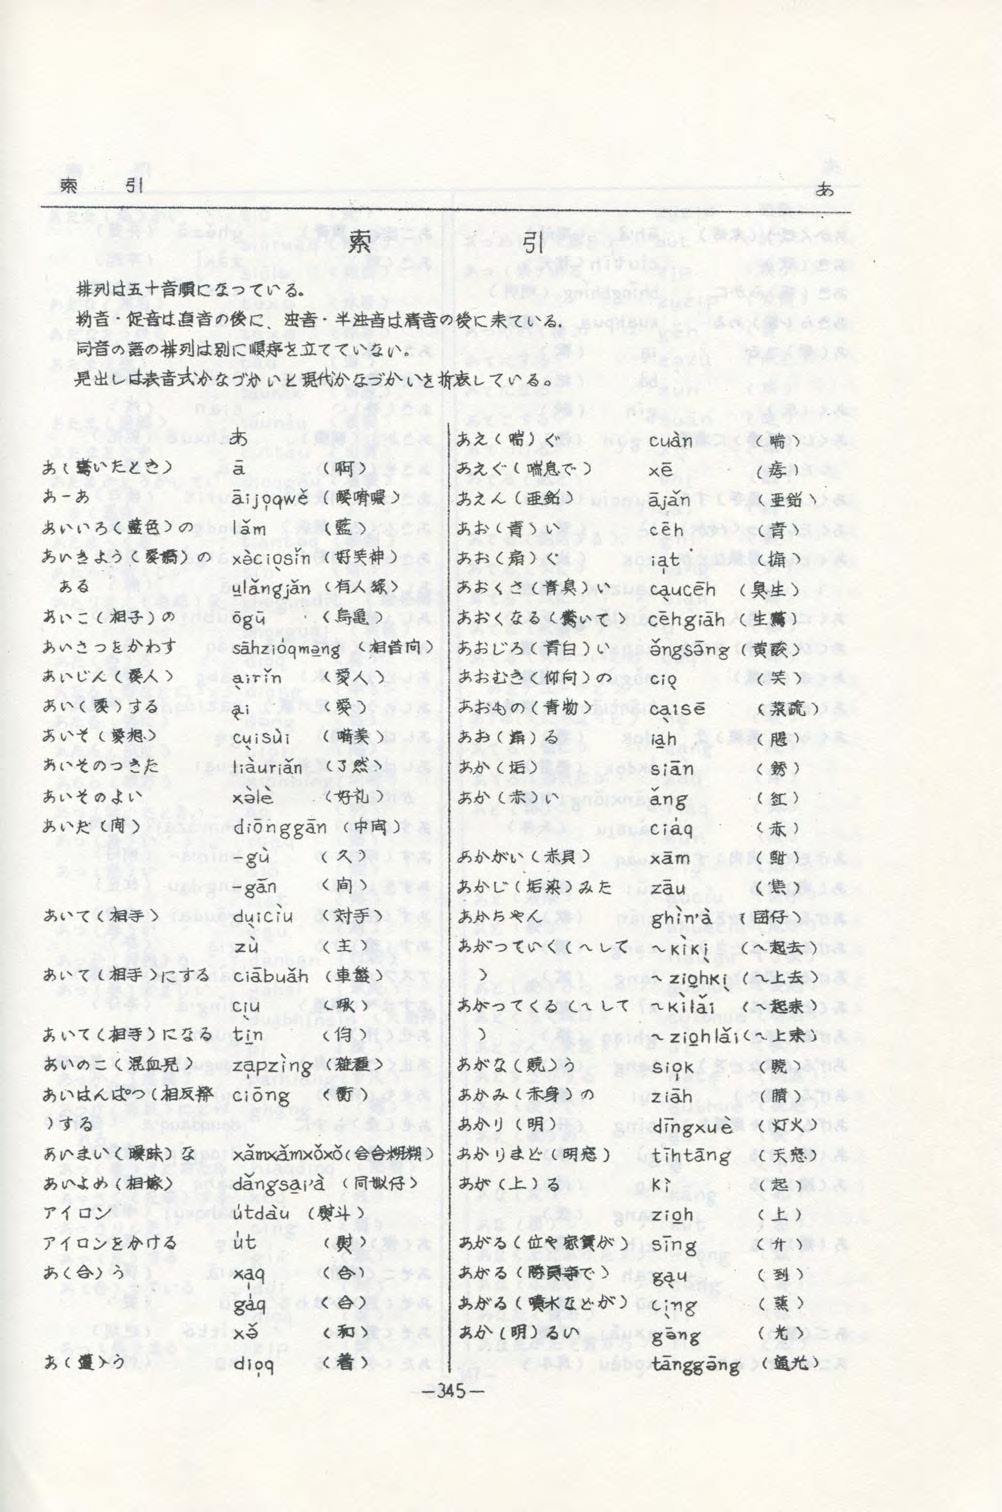 索 引
あ
索 引
排列は五十音順になっている。
拗音・促音は直音の後に、濁音・半濁音は清音の後に来ている。
同音の語の排列は別に順序を立てていない。
見出しは表音式かなづかいと現代かなづかいを折衷している。
あ
あ(驚いたとき) ā (啊)
あ-あ āijo̤qwě (噯唷喂)
あいいろ(藍色)の lǎm (藍)
あいきよう(愛嬌)の xàcio̤sǐn (好笑神)
ある ṳlǎngjǎn (有人緣)
あいこ(相子)の ōgū (烏亀)
あいさつをかわす sāhzióqme̤ng (相借问)
あいじん(愛人) a̤irǐn (愛人)
あい(愛)する a̤i (愛)
あいそ(愛想) cṳisùi (嘴美)
あいそのつきた liàuriǎn (了然)
あいそのよい xàlè (好礼)
あいだ(间) diōnggān (中间)
-gù (久)
-gān (间)
あいて(相手) dṳiciu (対手)
zù (主)
あいて(相手)にする ciābuǎh (車盤)
ciṳ (揪)
あいて(相手)になる ti̤n (伨)
あいのこ(混血児) za̤pzìng (雑種)
あいはんぱつ(相反撥 ciōng (衝)
)する
あいまい(曖昧)な xǎmxǎmxǒxǒ(含含糊糊)
あいよめ(相嫁) dǎngsa̤i'à (同姒仔)
アイロン útdàu (熨斗)
アイロンをかける út (熨)
あ(合)う xa̤q (合)
gáq (合)
xě (和)
あ(遭)う dio̤q (着)
あえ(喘)ぐ cuàn (喘)
あえぐ(喘息で) xē (痚)
あえん(亜鉛) ājǎn (亜鉛)
あお(青)い cēh (青)
あお(扇)ぐ ia̤t (搧)
あおくさ(青臭)い ca̤ucēh (臭生)
あおくなる(驚いて) cēhgiāh (生驚)
あおじろ(青白)い ǒngsōng (黄酸)
あおむき(仰向)の cio̤ (笑)
あおもの(青物) ca̤isē (菜蔬)
あお(煽)る ia̤h
あか(垢) siān (銹)
あか(赤)い ǎng (紅)
ciáq (赤)
あかがい(赤貝) xām (蚶)
あかじ(垢染)みた zāu
あかちやん ghìn'à (囝仔)
あがつていく(~して ~kìki̤ (~起去
) ~zio̤hki̤ (~上去)
あがつてくる(~して ~kìlǎi (~起来)
) ~zio̤hlǎi(~上来)
あがな(贖)う sio̤k (贖)
あかみ(赤身)の ziāh
あかり(明) dīngxuè (灯火)
あかりまど(明窓) tīhtāng (天窓)
あが(上)る kì (起)
zio̤h (上)
あがる(位や家賃が) sīng (升)
あがる(勝負事で) ga̤u (到)
あがる(噴水などが) ci̤ng (蒸)
あか(明)るい gōng (光)
tānggōng (通光)
-345-